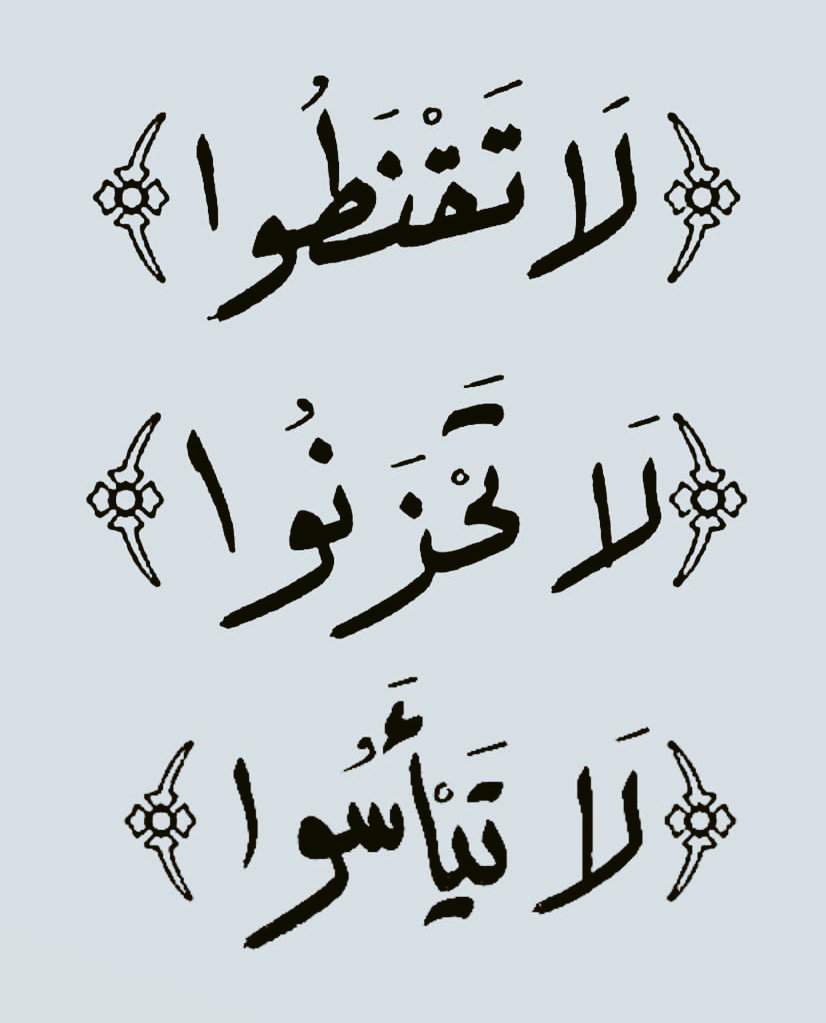 ﴿لَا تَقْنَطُوا﴾
﴿لَا تَحْزَنُوا﴾
﴿لَا تَيْأَسُوا﴾